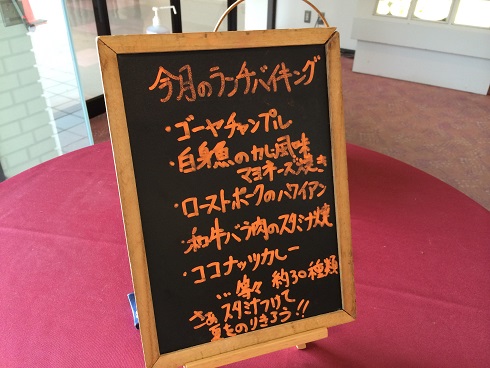 今月のランチバイキング
・ゴーヤチャンプル
・白身魚のカレー風味
マヨネーズ焼き
・ローストポークのハワイアン
・和牛バラ肉のスタミナ焼
・ココナッツカレー
…等々 約30種類
さぁ スタミナつけて
夏をのりきろう!!